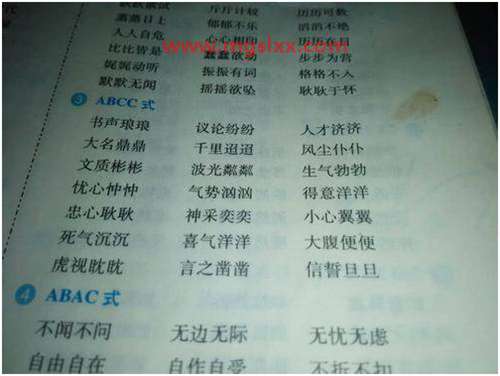 斤斤计较 历历可数
蒸蒸日上 郁郁不乐 滔滔不绝
人人自危 心心相印 历历在目
www.mgslxx.com
比比皆是 蠢蠢欲动 步步为营
娓娓动听 振振有词 格格不入
默默无闻 摇摇欲坠 耿耿于怀
3 ABCC 式
书声琅琅 议论纷纷 人才济济
大名鼎鼎 千里迢迢 风尘仆仆
文质彬彬 波光粼粼 生气勃勃
忧心忡忡 气势汹汹 得意洋洋
忠心耿耿 神采奕奕 小心翼翼
死气沉沉 喜气洋洋 大腹便便
虎视眈眈 言之凿凿 信誓旦旦
4 ABAC 式
不闻不问 无边无际 无忧无虑
自由自在 自作自受 不折不扣